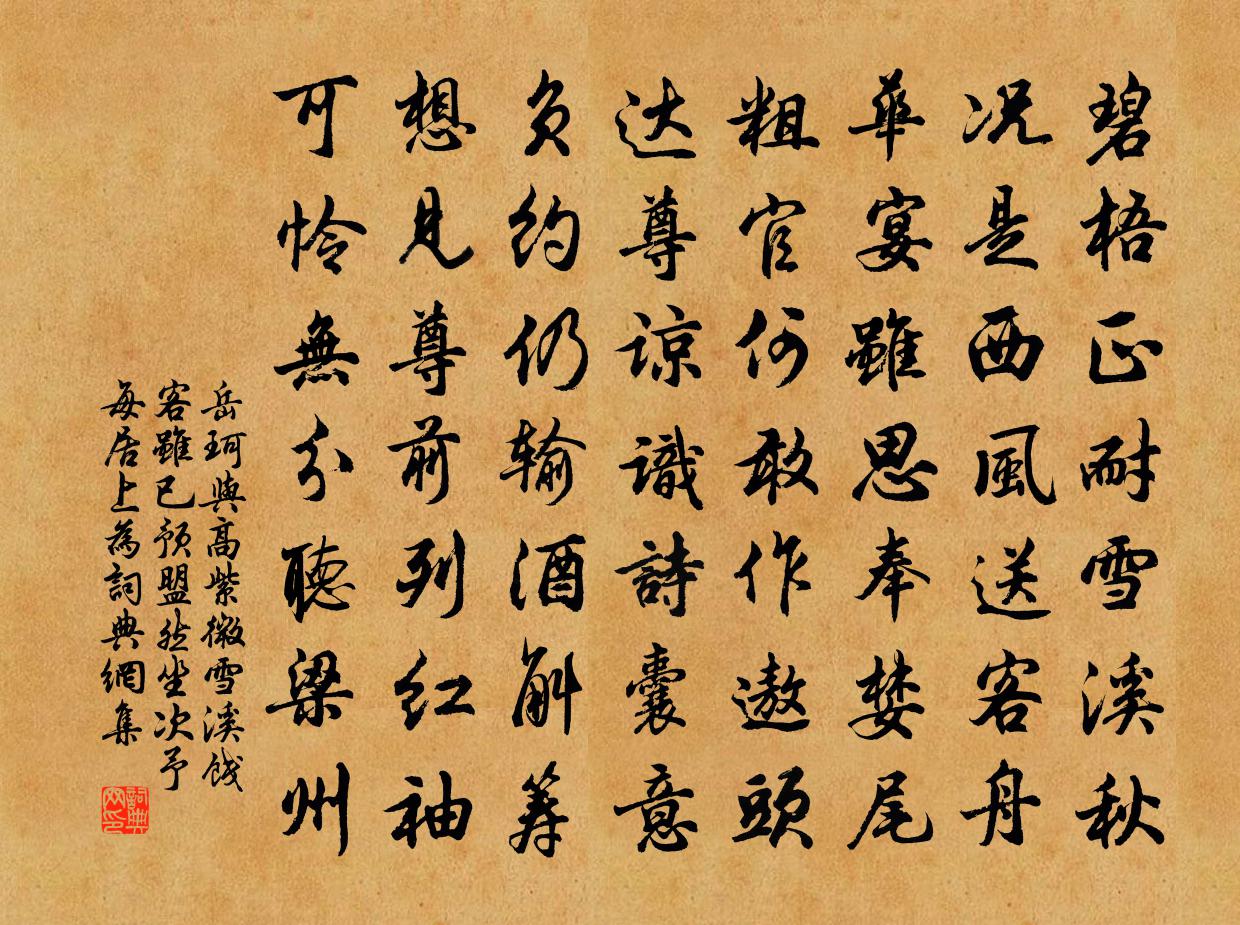 碧梧正耐雪溪秋
况是西風送客舟
華宴雖思奉婪尾
粗官何敢作遨頭
达尊諒識詩囊意
負約仍输酒斛筹
想見尊前列红袖
可怜無分聽梁州
岳珂與高紫微雪溪餞
客雖已預盟然坐次予
每居上為詞典網集
詞典
网印